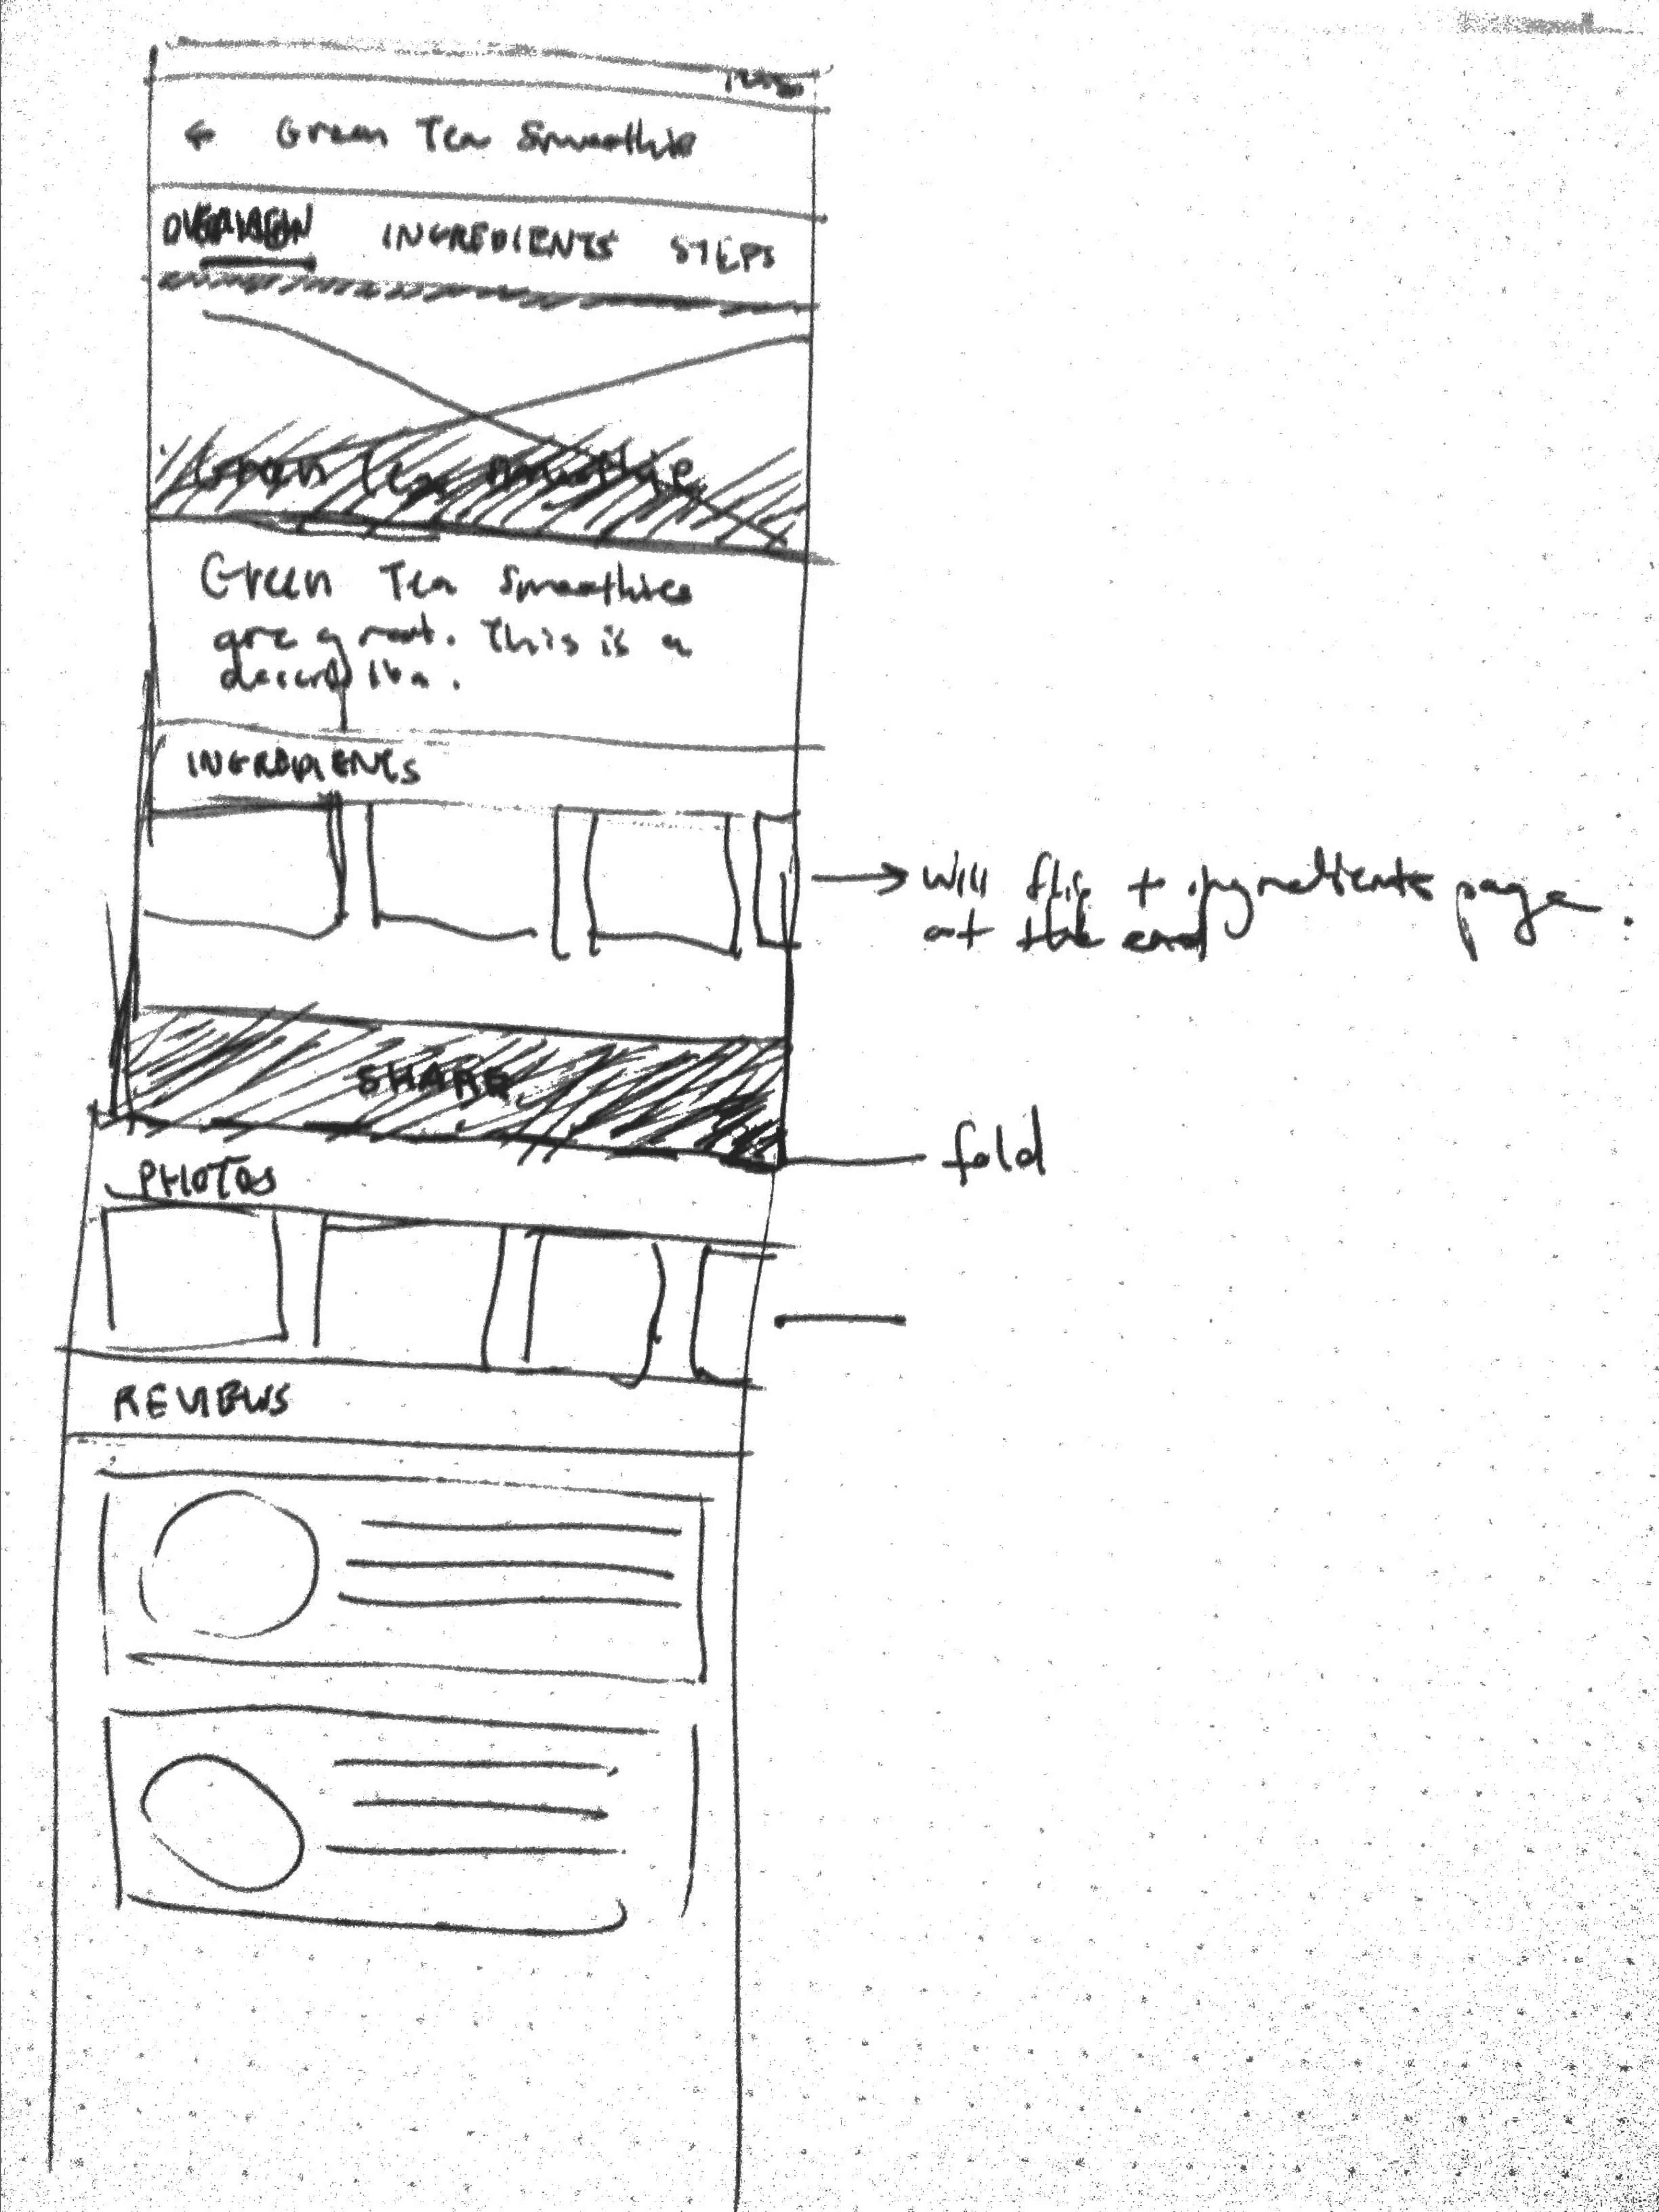 ← Green Tea Smoothie
OVERVIEW INGREDIENTS STEPS
Green Tea Smoothie
Green Tea Smoothies
are great. This is a
description.
INGREDIENTS
→ will flip to ingredients page
at the end.
SHARE
fold
PHOTOS
REVIEWS